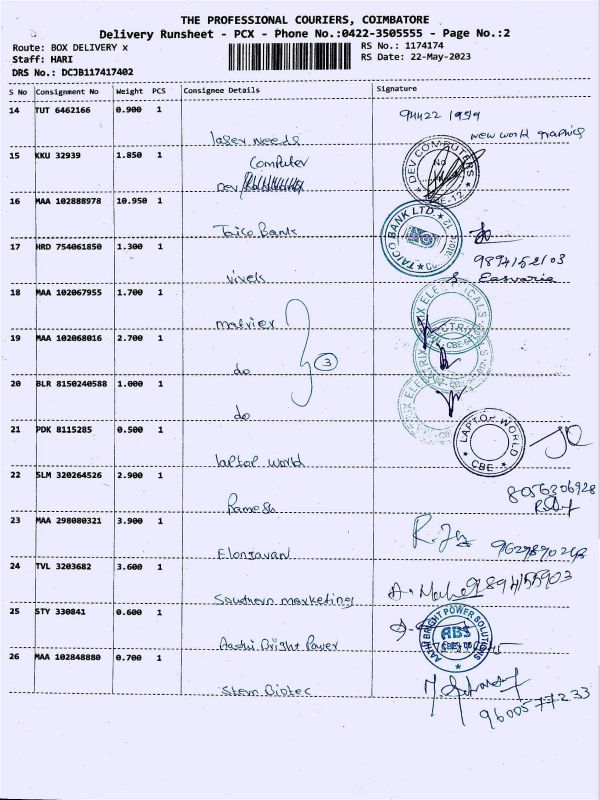 THE PROFESSIONAL COURIERS, COIMBATORE
Delivery Runsheet - PCX - Phone No.:0422-3505555 - Page No.:2
Route: BOX DELIVERY x
Staff: HARI
DRS No.: DCJB117417402
RS No.: 1174174
RS Date: 22-May-2023
S No Consignment No Weight PCS Consignee Details Signature
14 TUT 6462166 0.900 1
94422 1959
laser needs
new world graphics
15 KKU 32939 1.850 1
Computer
Dev
DEV COMPUTERS
16 MAA 102888978 10.950 1
Taico Bank
TAICO BANK LTD
17 HRD 754061850 1.300 1
9894152103
viveks
Easvaria
18 MAA 102067955 1.700 1
19 MAA 102068016 2.700 1
do
3
20 BLR 8150240588 1.000 1
do
21 PDK 8115285 0.500 1
laptop world
LAPTOP WORLD
CBE
22 SLM 320264526 2.900 1
Ramesh
8056306928
23 MAA 298080321 3.900 1
Elongavan
24 TVL 3203682 3.600 1
Southern marketing
25 STY 330841 0.600 1
Aathi Bright Power
AATHI BRIGHT POWER SOLUTIONS
ABS
26 MAA 102848880 0.700 1
9600577233